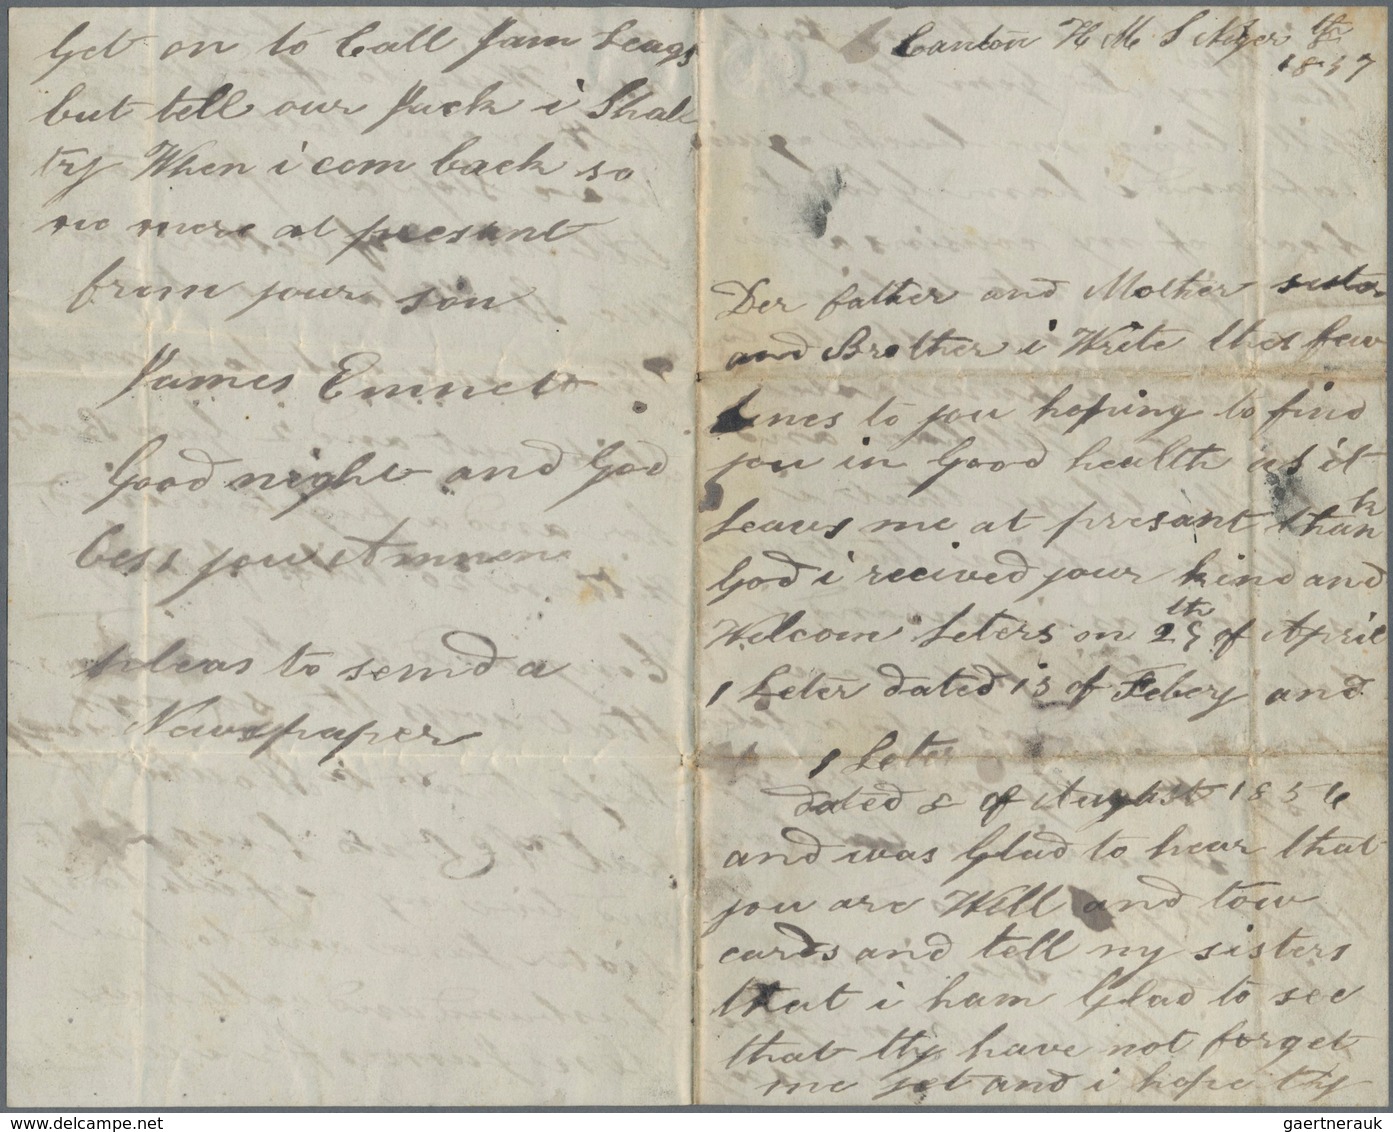 Canton H M S Niger th
1857
Der father and Mother sister
and Brother i Write thes few
Lines to you hoping to find
you in Good health as it
Leavs me at presant thank
God i recived your kind and
Welcom Leters on 28th of April
1 Leter dated 13 of Febery and
1 Leter
dated 8 of August 1856
and was Glad to hear that
you are Well and tow
cards and tell my sisters
that i ham Glad to see
that thy have not forget
me yet and i hope thy
Get on to Call Jam Leags
but tell our Jack i Shall
try When i com back so
no more at presant
from your son
James Emnet
Good night and God
bess you Ammen
pleas to send a
Newspaper
gaertnerauk